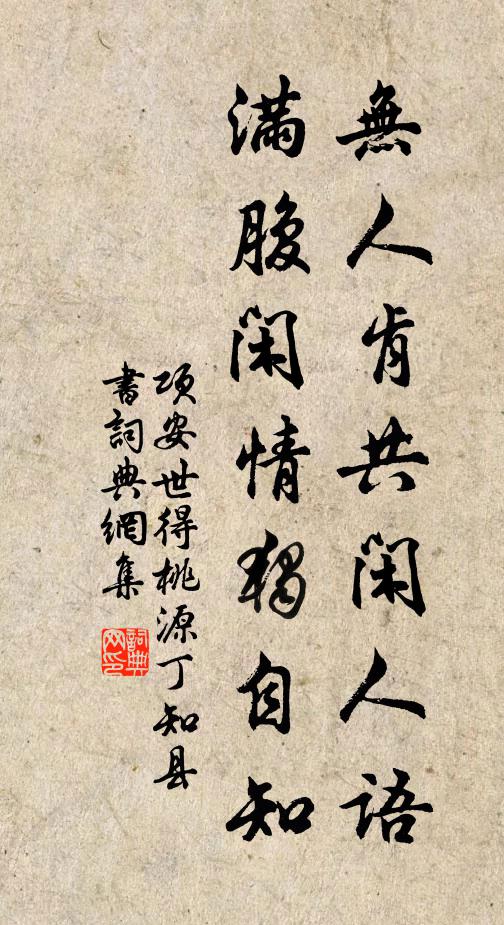 無人肯共閑人語
滿腹閑情獨自知
項安世得桃源丁知县
書詞典網集
詞典網印